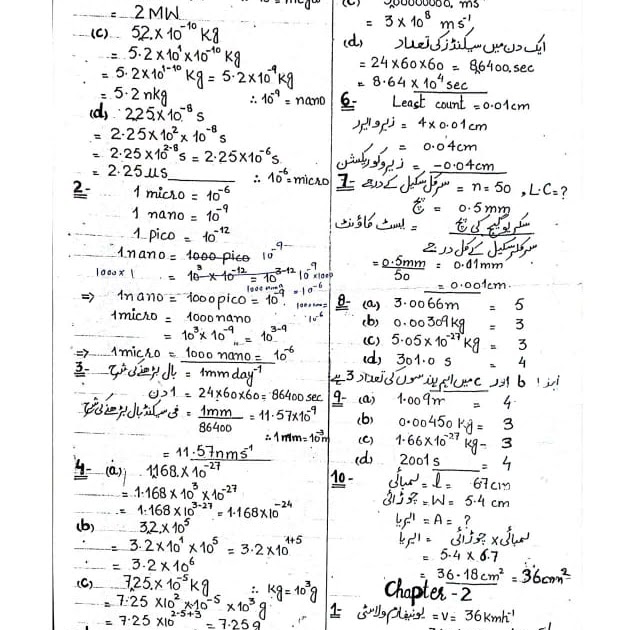 = 2 MW
(c) 52.×10⁻¹⁰ Kg
= 5.2×10¹×10⁻¹⁰ Kg
= 5.2×10¹⁻¹⁰ Kg = 5.2×10⁻⁹ Kg
= 5.2 nkg ∴ 10⁻⁹ = nano
(d) 225×10⁻⁸ s
= 2.25×10²×10⁻⁸ s
= 2.25×10²⁻⁸ s = 2.25×10⁻⁶ s
= 2.25 µs ∴ 10⁻⁶ = micro
2-
1 micro = 10⁻⁶
1 nano = 10⁻⁹
1 pico = 10⁻¹²
1 nano = 1000 pico 10⁻⁹
1000 × 1 = 10³×10⁻¹² = 10³⁻¹² 10⁻⁹
⇒ 1 nano = 1000 pico = 10⁻⁹ = 10⁻⁶
1 micro = 1000 nano 10⁻⁶
= 10³×10⁻⁹ = 10³⁻⁹
⇒ 1 micro = 1000 nano = 10⁻⁶
3- بال بڑھنے کی شرح = 1mm day⁻¹
1 دن = 24×60×60 = 86400 sec
فی سیکنڈ بال بڑھنے کی شرح = 1mm / 86400 = 11.57×10⁻⁹
∴ 1mm = 10⁻³m
= 11.57 nms⁻¹
4- (a) 1168.×10⁻²⁷
= 1.168×10³×10⁻²⁷
= 1.168×10³⁻²⁷ = 1.168×10⁻²⁴
(b) 32×10⁵
= 3.2×10¹×10⁵ = 3.2×10¹⁺⁵
= 3.2×10⁶
(c) 725.×10⁻⁵ Kg ∴ Kg = 10³g
= 7.25×10²×10⁻⁵×10³g
= 7.25×10²⁻⁵⁺³ = 7.25g
= 3×10⁸ ms⁻¹
(d) ایک دن میں سیکنڈز کی تعداد
= 24×60×60 = 86400. sec
= 8.64×10⁴ sec
6- Least count = 0.01cm
زیرو ایرر = 4×0.01cm
= 0.04cm
زیرو کوریکشن = -0.04cm
7- سرکلر سکیل کے درجے = n = 50, L.C = ?
پچ = 0.5mm
لیسٹ کاؤنٹ = سکریو گیج کی پچ / سرکلر سکیل کے کل درجے
= 0.5mm / 50 = 0.01mm
= 0.001cm
8- (a) 3.0066m = 5
(b) 0.00309kg = 3
(c) 5.05×10⁻²⁷kg = 3
(d) 301.0 s = 4
لہٰذا b اور c میں اہم ہندسوں کی تعداد 3 ہے
9- (a) 1.009m = 4
(b) 0.00450 kg = 3
(c) 1.66×10⁻²⁷ kg- 3
(d) 2001 s = 4
10- لمبائی = l = 67cm
چوڑائی = W = 5.4 cm
ایریا = A = ?
ایریا = لمبائی × چوڑائی
= 5.4 × 6.7
= 36.18cm² = 36cm²
Chapter-2
1- یونیفارم ولاسٹی = v = 36kmh⁻¹